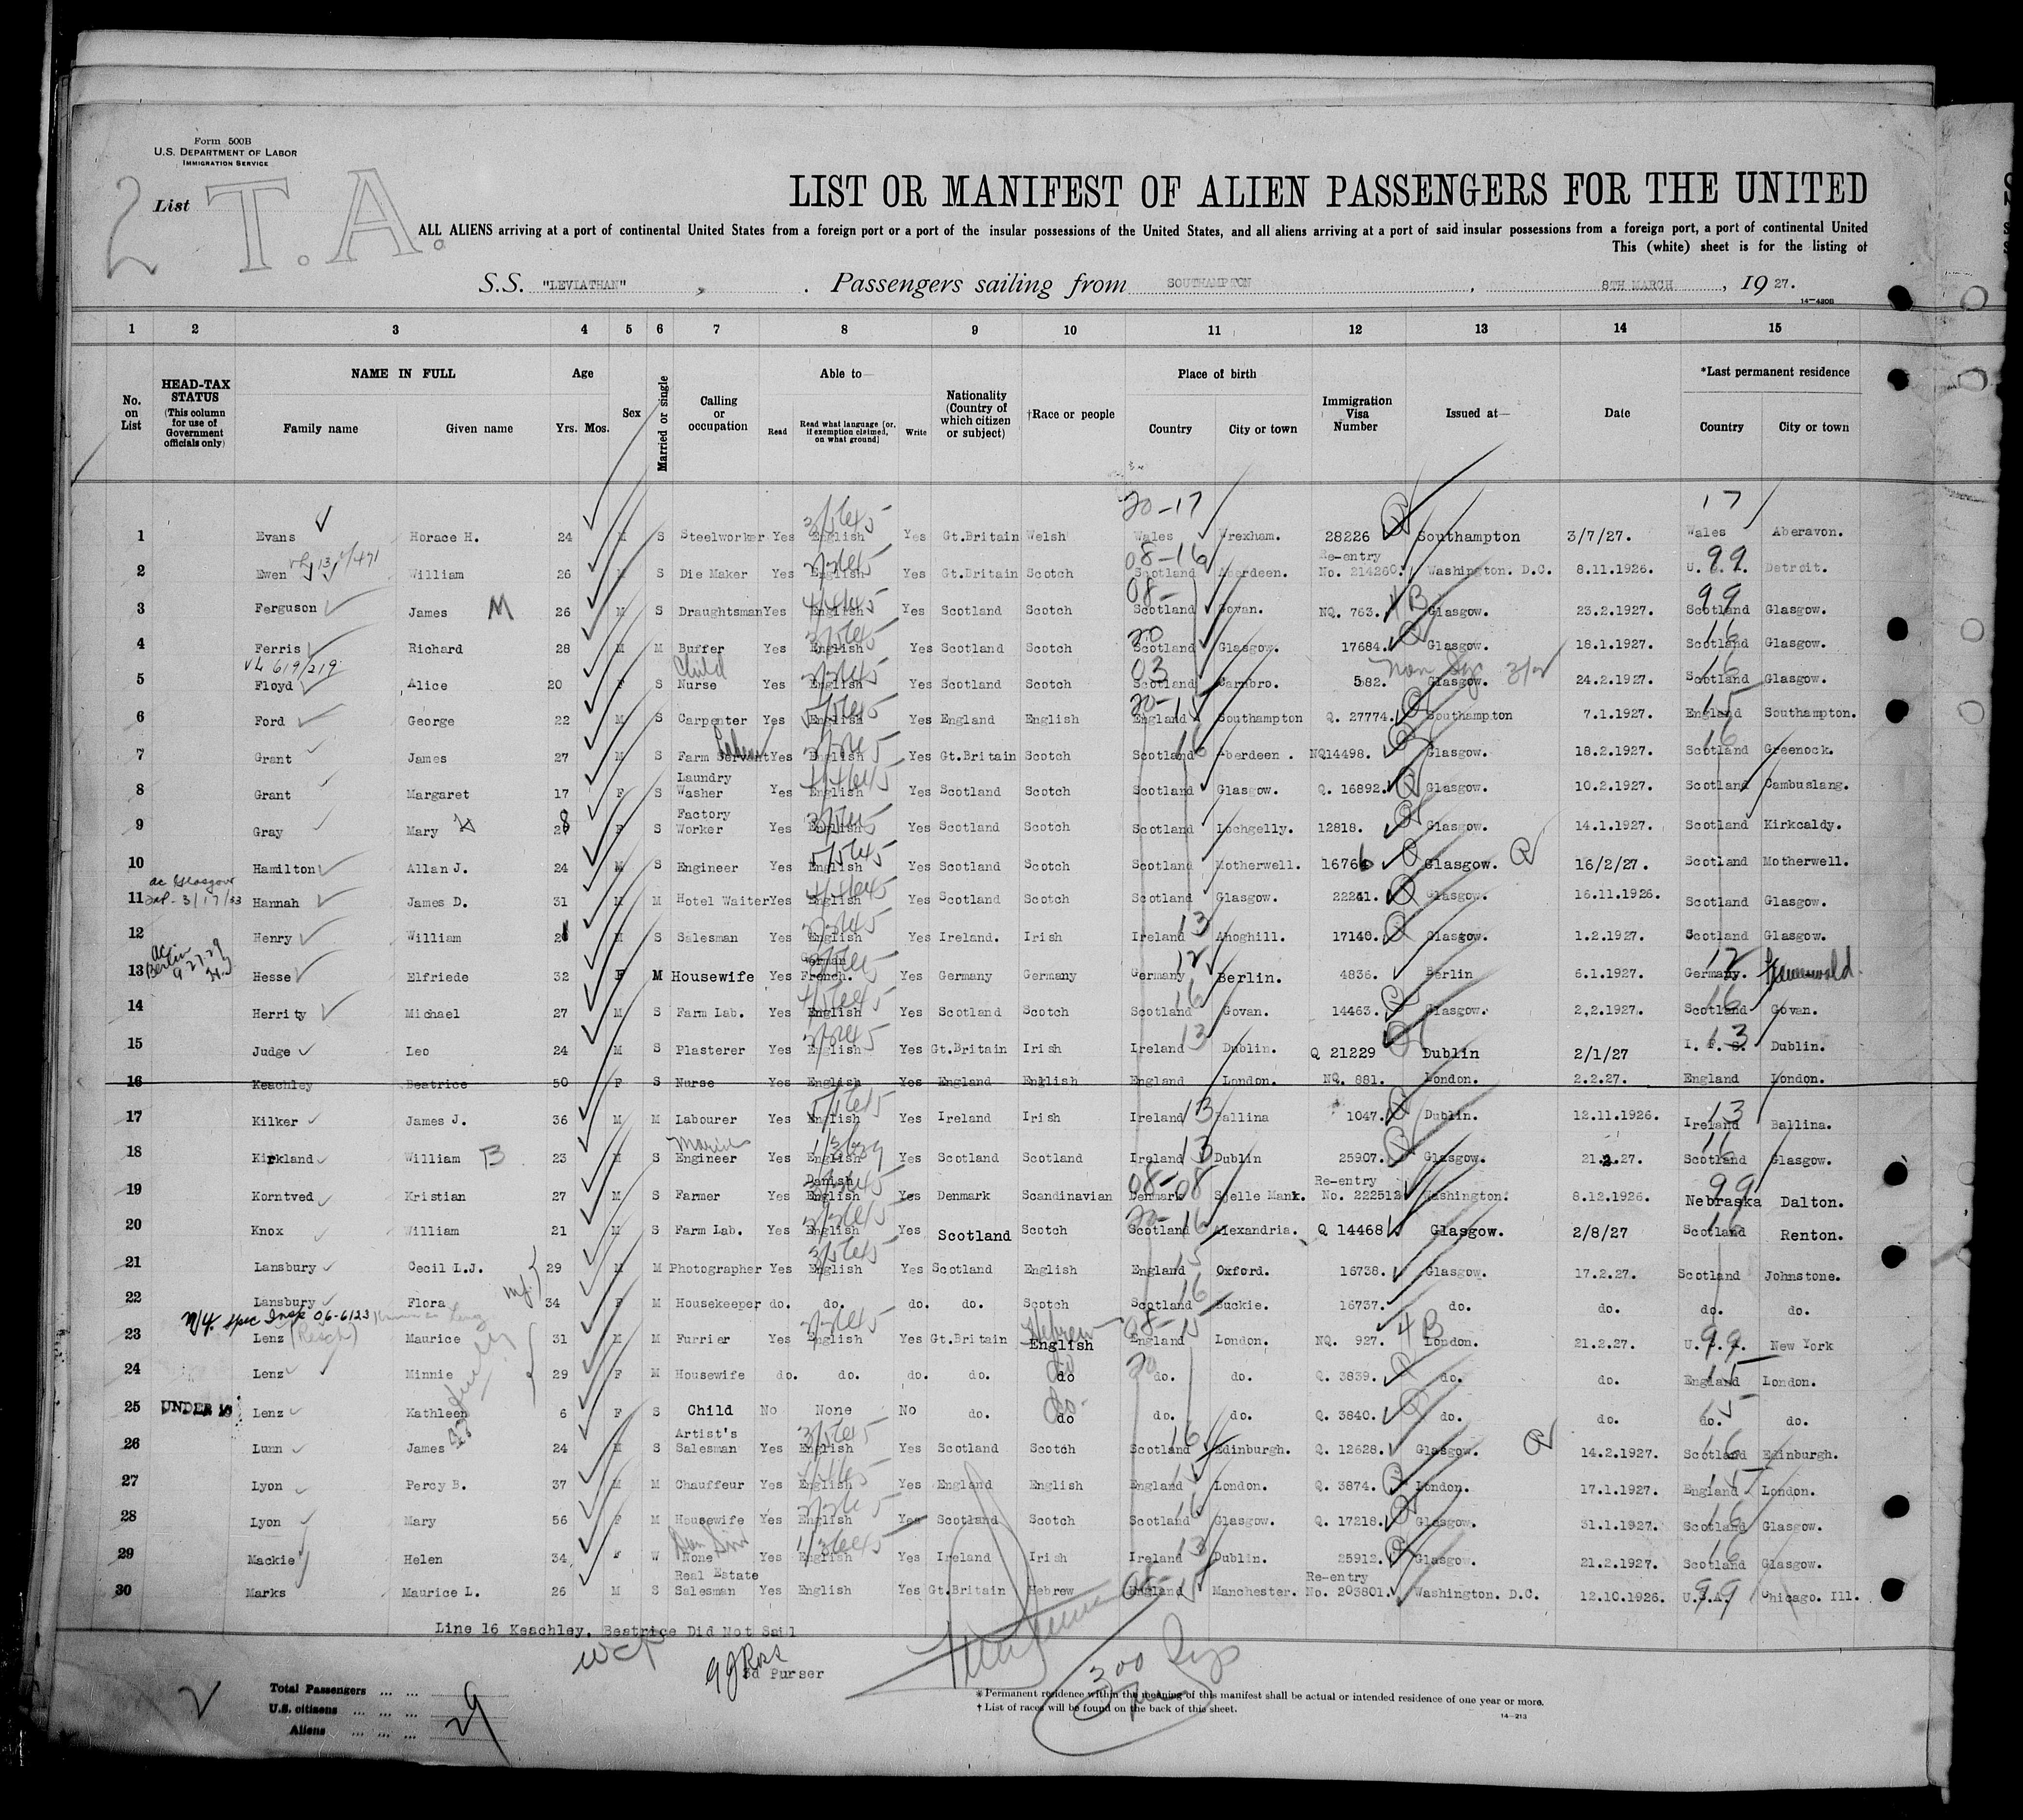 Form 500B
U.S. DEPARTMENT OF LABOR
IMMIGRATION SERVICE
2 T.A.
List
LIST OR MANIFEST OF ALIEN PASSENGERS FOR THE UNITED
ALL ALIENS arriving at a port of continental United States from a foreign port or a port of the insular possessions of the United States, and all aliens arriving at a port of said insular possessions from a foreign port, a port of continental United
This (white) sheet is for the listing of
S.S. "LEVIATHAN", Passengers sailing from SOUTHAMPTON, 8TH MARCH, 1927.
14-430B
1 2 3 4 5 6 7 8 9 10 11 12 13 14 15
No. on List
HEAD-TAX STATUS (This column for use of Government officials only)
NAME IN FULL
Family name Given name
Age
Yrs. Mos.
Sex
Married or single
Calling or occupation
Able to—
Read Read what language [or, if exemption claimed, on what ground] Write
Nationality (Country of which citizen or subject)
†Race or people
Place of birth
Country City or town
Immigration Visa Number
Issued at—
Date
*Last permanent residence
Country City or town
20-17 17
1 Evans Horace H. 24 M S Steelworker Yes English Yes Gt.Britain Welsh Wales Wrexham. 28226 Southampton 3/7/27. Wales Aberavon.
08-16 99
2 Ewen William 26 M S Die Maker Yes English Yes Gt.Britain Scotch Scotland Aberdeen. Re-entry No. 214260. Washington. D.C. 8.11.1926. U.S.A. Detroit.
08- 99
3 Ferguson James M 26 M S Draughtsman Yes English Yes Scotland Scotch Scotland Govan. NQ. 763. 4 B Glasgow. 23.2.1927. Scotland Glasgow.
20 16
4 Ferris Richard 28 M M Buffer Yes English Yes Scotland Scotch Scotland Glasgow. 17684. Glasgow. 18.1.1927. Scotland Glasgow.
03 16
5 Floyd Alice 20 F S Child Nurse Yes English Yes Scotland Scotch Scotland Carnbro. 582. Glasgow. 24.2.1927. Scotland Glasgow.
20-15 15
6 Ford George 22 M S Carpenter Yes English Yes England English England Southampton Q. 27774. Southampton 7.1.1927. England Southampton.
16 16
7 Grant James 27 M S Farm Servant Yes English Yes Gt.Britain Scotch Scotland Aberdeen. NQ14498. Glasgow. 18.2.1927. Scotland Greenock.
8 Grant Margaret 17 F S Laundry Washer Yes English Yes Scotland Scotch Scotland Glasgow. Q. 16892. Glasgow. 10.2.1927. Scotland Cambuslang.
9 Gray Mary 28 F S Factory Worker Yes English Yes Scotland Scotch Scotland Lochgelly. 12818. Glasgow. 14.1.1927. Scotland Kirkcaldy.
10 Hamilton Allan J. 24 M S Engineer Yes English Yes Scotland Scotch Scotland Motherwell. 16766 Glasgow. 16/2/27. Scotland Motherwell.
ac Glasgow
11 3/17/33 Hannah James D. 31 M M Hotel Waiter Yes English Yes Scotland Scotch Scotland Glasgow. 22241. Glasgow. 16.11.1926. Scotland Glasgow.
12 Henry William 21 M S Salesman Yes English Yes Ireland. Irish Ireland 13 Ahoghill. 17140. Glasgow. 1.2.1927. Scotland Glasgow.
13 Hesse Elfriede 32 F M Housewife Yes German French. Yes Germany Germany Germany 12 Berlin. 4836. Berlin 6.1.1927. Germany. 12
14 Herrity Michael 27 M S Farm Lab. Yes English Yes Scotland Scotch Scotland 16 Govan. 14463. Glasgow. 2.2.1927. Scotland 16 Govan.
15 Judge Leo 24 M S Plasterer Yes English Yes Gt.Britain Irish Ireland 13 Dublin. Q 21229 Dublin 2/1/27 I. F. S. 13 Dublin.
16 Keachley Beatrice 50 F S Nurse Yes English Yes England English England London. NQ. 881. London. 2.2.27. England London.
17 Kilker James J. 36 M M Labourer Yes English Yes Ireland Irish Ireland 13 Ballina 1047. Dublin. 12.11.1926. Ireland 13 Ballina.
18 Kirkland William B 23 M S Engineer Yes English Yes Scotland Scotland Ireland 13 Dublin 25907. Glasgow. 21.2.27. Scotland 16 Glasgow.
19 Korntved Kristian 27 M S Farmer Yes Danish English Yes Denmark Scandinavian Denmark 08-08 Sjelle Mark. Re-entry No. 222512 Washington. 8.12.1926. Nebraska 99 Dalton.
20 Knox William 21 M S Farm Lab. Yes English Yes Scotland Scotch Scotland 20-16 Alexandria. Q 14468 Glasgow. 2/8/27 Scotland 16 Renton.
21 Lansbury Cecil L.J. 29 M M Photographer Yes English Yes Scotland English England 15 Oxford. 16738. Glasgow. 17.2.27. Scotland Johnstone.
22 Lansbury Flora 34 F M Housekeeper do. do. do. do. Scotch Scotland 16 Buckie. 16737. do. do. do. do.
N/Y. Spec Insp 06-6123
23 Lenz Maurice 31 M M Furrier Yes English Yes Gt.Britain Hebrew English England 08-15 London. NQ. 927. 4 B London. 21.2.27. U.S.A. 99 New York
24 Lenz Minnie 29 F M Housewife do. do. do. do. do do. 20 do. Q. 3839. do. do. England 15 London.
25 UNDER 16 Lenz Kathleen 6 F S Child No None No do. do do. do. Q. 3840. do. do. do. 15 do.
26 Lunn James 24 M S Artist's Salesman Yes English Yes Scotland Scotch Scotland 16 Edinburgh. Q. 12628. Glasgow. 14.2.1927. Scotland 16 Edinburgh.
27 Lyon Percy B. 37 M M Chauffeur Yes English Yes England English England 15 London. Q. 3874. London. 17.1.1927. England 15 London.
28 Lyon Mary 56 F M Housewife Yes English Yes Scotland Scotch Scotland 16 Glasgow. Q. 17218. Glasgow. 31.1.1927. Scotland 16 Glasgow.
29 Mackie Helen 34 F W None Yes English Yes Ireland Irish Ireland 13 Dublin. 25912. Glasgow. 21.2.1927. Scotland 16 Glasgow.
30 Marks Maurice L. 26 M S Real Estate Salesman Yes English Yes Gt.Britain Hebrew England Manchester. Re-entry No. 203801. Washington. D.C. 12.10.1926. U.S.A. 99 Chicago. Ill.
Line 16 Keachley, Beatrice Did Not Sail
3d Purser
Total Passengers ... ...
U.S. citizens ... ... ...
Aliens ... ... ...
29
300
* Permanent residence within the meaning of this manifest shall be actual or intended residence of one year or more.
† List of races will be found on the back of this sheet.
14-213